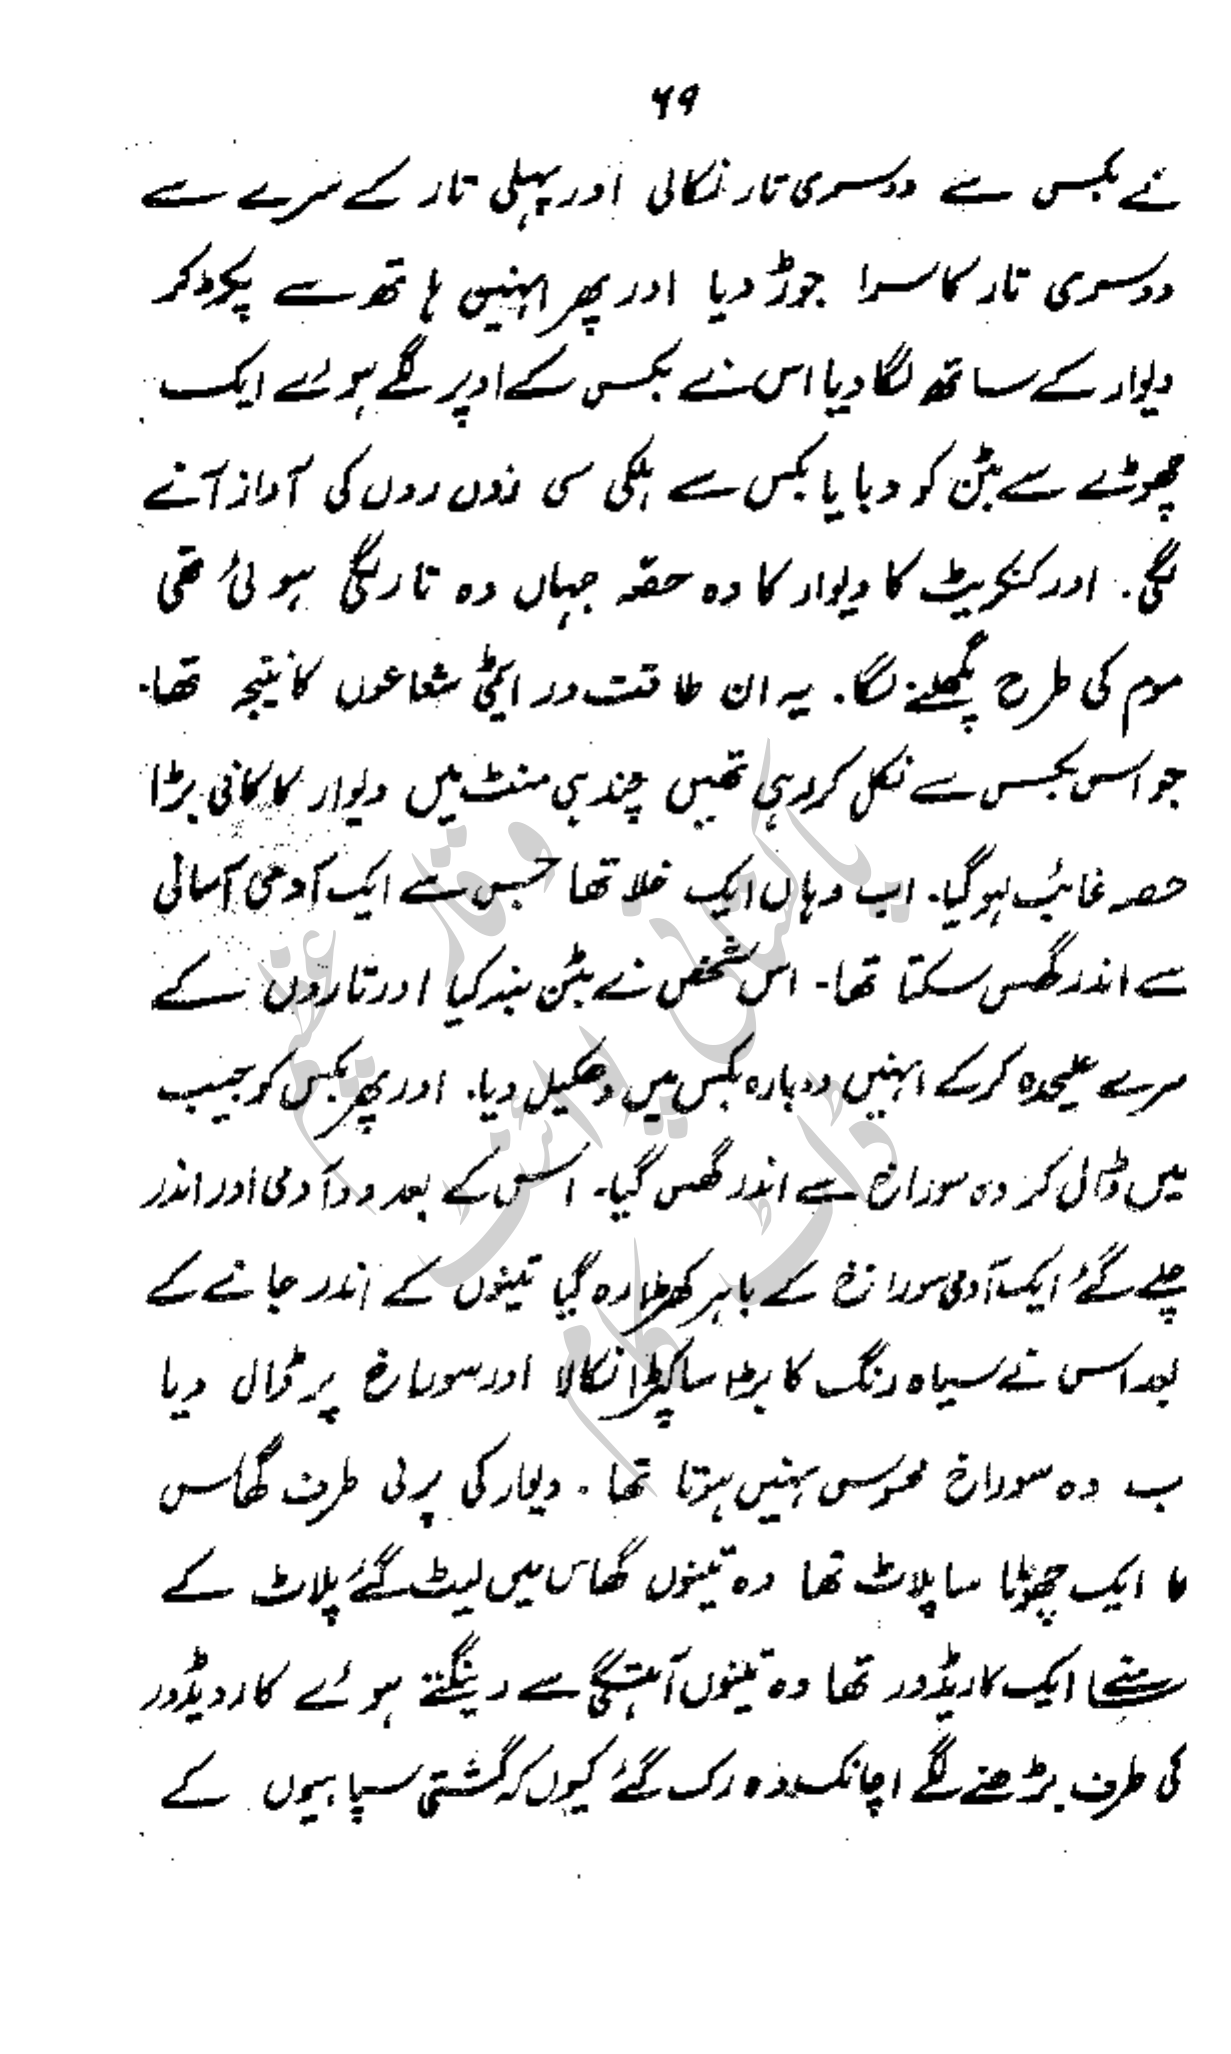 ۶۹
نے بکس سے دوسری تار نکالی اور پہلی تار کے سرے سے
دوسری تار کا سرا جوڑ دیا اور پھر انہیں ہاتھ سے پکڑ کر
دیوار کے ساتھ لگا دیا اس نے بکس کے اوپر لگے ہوئے ایک
چھوٹے سے بٹن کو دبایا بکس سے ہلکی سی زوں زوں کی آواز آنے
لگی۔ اور کنکریٹ کا دیوار کا وہ حصہ جہاں وہ تار لگی ہوئی تھی
موم کی طرح پگھلنے لگا۔ یہ ان طاقت ور ایٹمی شعاعوں کا نتیجہ تھا۔
جو اس بکس سے نکل کر رہی تھیں چند ہی منٹ میں دیوار کا کافی بڑا
حصہ غائب ہو گیا۔ اب وہاں ایک خلا تھا جس سے ایک آدمی آسانی
سے اندر گھس سکتا تھا۔ اس شخص نے بٹن بند کیا اور تاروں کے
سرے علیحدہ کر کے انہیں دوبارہ بکس میں دھکیل دیا۔ اور پھر بکس کو جیب
میں ڈال کر وہ سوراخ سے اندر گھس گیا۔ اس کے بعد دو آدمی اور اندر
چلے گئے ایک آدمی سوراخ کے باہر کھڑا رہ گیا تینوں کے اندر جانے کے
بعد اس نے سیاہ رنگ کا بڑا سا کپڑا نکالا اور سوراخ پر ڈال دیا
ب وہ سوراخ محسوس نہیں ہوتا تھا۔ دیوار کی پرلی طرف گھاس
کا ایک چھوٹا سا پلاٹ تھا وہ تینوں گھاس میں لیٹ گئے پلاٹ کے
سامنے ایک کاریڈور تھا وہ تینوں آہستگی سے رینگتے ہوئے کاردیڈور
کی طرف بڑھنے لگے اچانک وہ رک گئے کیوں کہ گشتی سپاہیوں کے
پاکستانی پوائنٹ ڈاٹ کام
وقار عظیم